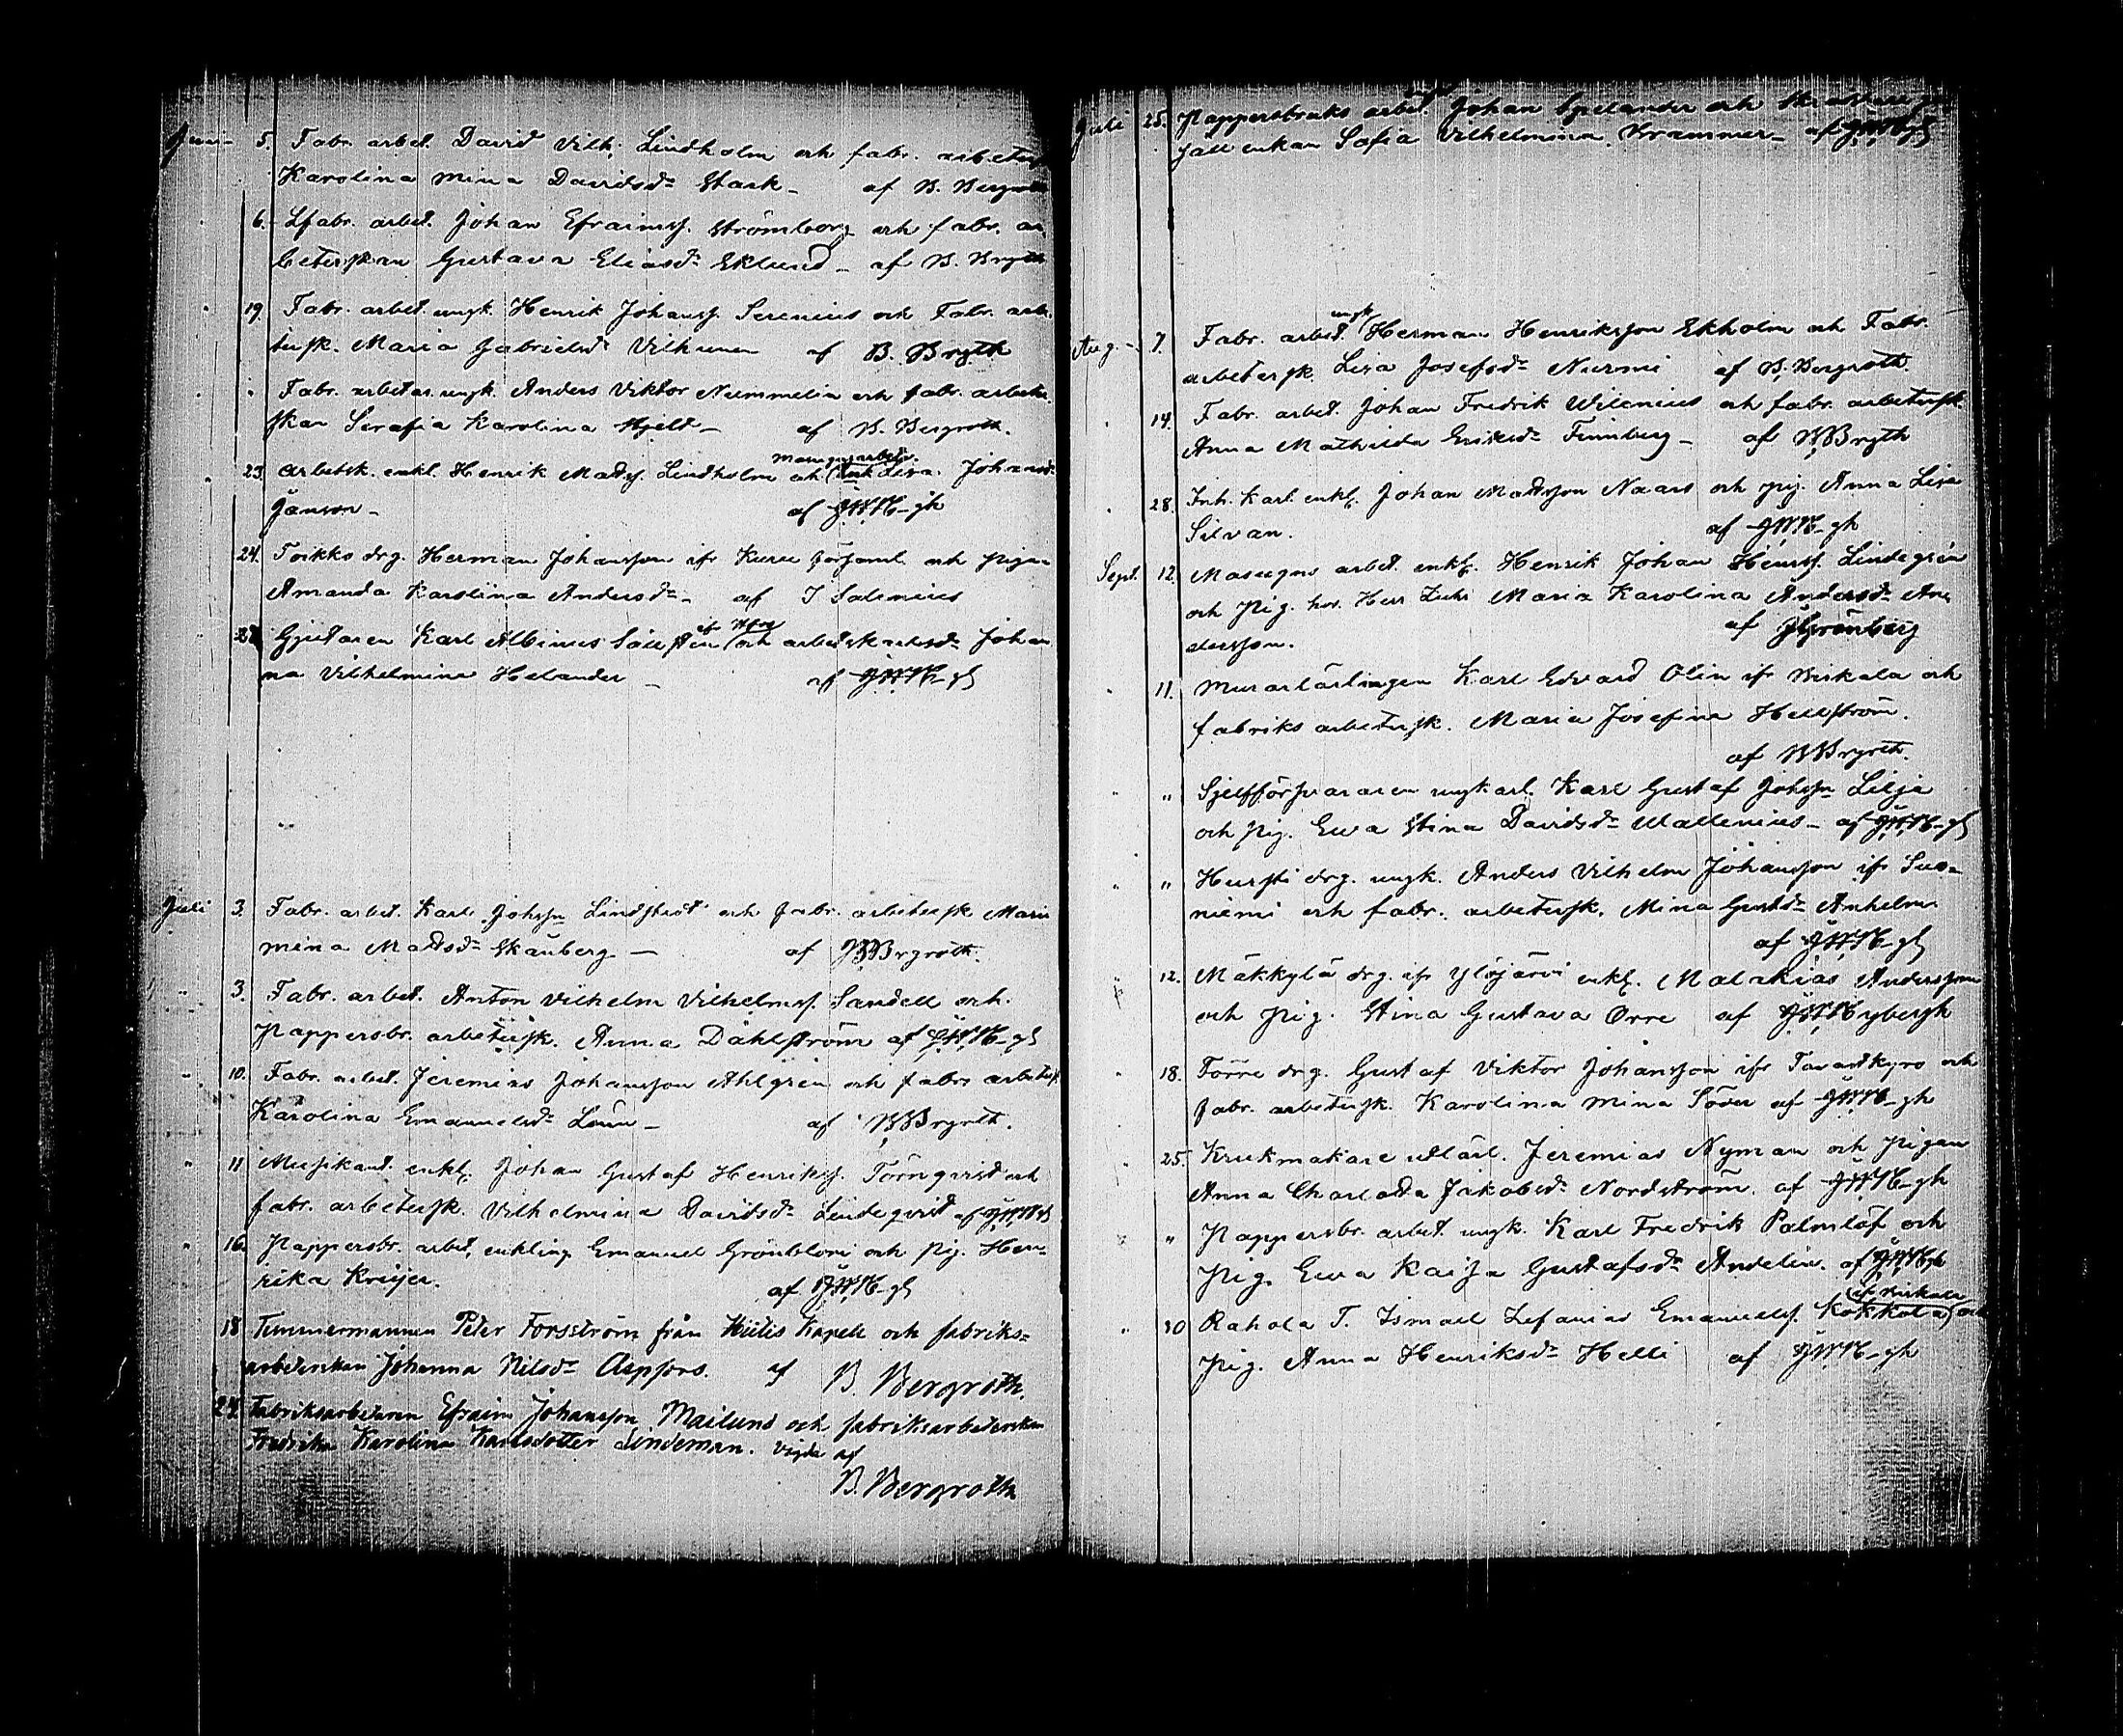 Juni 5. Fabr. arbet. David Vilh. Lindholm och fabr. arbetersk
Karolina Mina Davidsdr Stark – af B. Bergroth
6. Lfabr. arbet. Johan Efraimss. Strömborg och fabr. ar-
beterskan Gustava Eliasdr Eklund – af B. Brgth
19. Fabr. arbet. ungk. Henrik Johanss. Serenius och Fabr. arbe-
tersk. Maria Gabrielsdr Vilhunen af B. Brgth
" Fabr. arbetar. ungk. Anders Viktor Nummelin och fabr. arbeter-
skan Serafia Karolina Hjeld – af B. Bergroth.
Masugnsarbets.
23. Arbetsk. enkl. Henrik Matss. Lindholm och Enk Lisa Johansdr
Janson – af
24. Toikko drg. Herman Johansson ifr Kuru församl. och pigan
Amanda Karolina Andersdr – af I Salenius
27. Gjutaren Karl Albinus Sällsten ifr och arbetskarlsdr Johan
na Vilhelmina Helander – af
Juli 3. Fabr. arbet. Karl Johssn Lindstedt och fabr. arbetersk Maria
Mina Matsdr Skanberg – af B Brgroth.
" 3. Fabr. arbet. Anton Vilhelm Vilhelmss. Sandell och
Pappersbr. arbetersk. Anna Dahlström af
" 10. Fabr. arbet. Jeremias Johansson Ahlgren och fabrs arbetersk.
Karolina Emanuelsdr Lönn – af B Brgroth.
" 11 Musikant. enkl. Johan Gustaf Henrikss. Törnqvist och
fabr. arbetersk. Vilhelmina Davidsdr Lindeqvist af
" 16. Pappersbr. arbet. enkling Emanuel Grönblom och pig. Hen-
rika Kreijer. af
18 Timmermannen Peter Forsström från Hiitis Kapell och fabriks-
arbeterskan Johanna Nilsdr Aspfors. af B. Bergroth.
24. Fabriksarbetaren Efraim Johansson Mailund och fabriksarbeterskan
Fredrika Karolina Karlsdotter Lindeman. Vigda af
B. Bergroth
Juli 25. Pappersbruks arbet. Johan och
enkan Sofia Vilhelmina Krammer – af
ungk
Aug. – 7. Fabr. arbet. Herman Henriksson Ekholm och Fabr.
arbetersk. Lisa Josefsdr Nurmi af B. Bergroth.
" 14. Fabr. arbet. Johan Fredrik Wilenius och fabr. arbetersk.
Anna Mathilda Eriksdr Finnberg – af B Brgth
" 28. Inh. Karl. enkl. Johan Matsson Naars och pig. Anna Lisa
Silvan. af
Sept. 12. Masugns arbet. enkl. Henrik Johan Henrss. Lindegren
och pig. hos. Herr Maria Karolina Andersdr An-
dersson. af Grönberg
" 11. Murarlärlingen Karl Edvard Olin ifr Birkala och
fabriks arbetersk. Maria Josefina Hellström.
af B Brgroth.
" " Sjelfförsvararen ungkarl. Karl Gustaf Johssn Lilja
och pig. Eva Stina Davidsdr Wallenius – af
" " Hursti drg. ungk. Anders Vilhelm Johansson ifr Suo-
niemi och fabr. arbetersk. Mina Gustdr Anhelm
af
" 12. Mäkkylä drg. ifr Ylöjärvi enkl. Malakias Andersson
och pig. Stina Gustava Orre af
" 18. Törre drg. Gustaf Viktor Johansson ifr Tavastkyro och
fabr. arbetersk. Karolina Mina Söder af
" 25. Krukmakare utlärl. Jeremias Nyman och pigan
Anna Charlotta Jakobsdr Nordström. af
" Pappersbr. arbet. ungk. Karl Fredrik Palmlöf och
pig. Eva Kaisa Gustafsdr Andelin. af
ifr Birkala
" 30 Rahola T. Ismael Zefanias Emanuelss. Kokkola och
pig. Anna Henriksdr Helli af